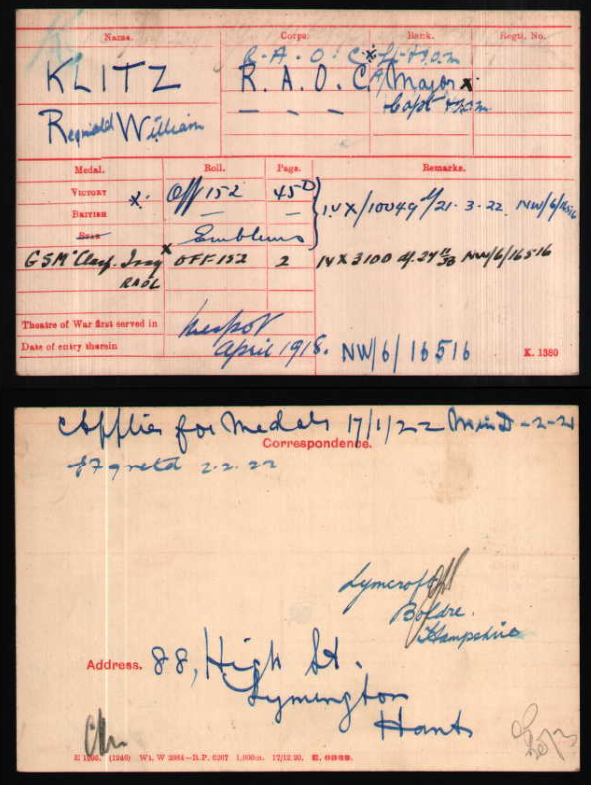 Name. Corps. Rank. Regtl. No.
R. A. O. C. x
KLITZ R. A. O. C. Major x
Reginald William — — — Capt
Medal. Roll. Page. Remarks.
VICTORY x. Off 152 45D IVX/10049 21-3-22. NW/6/16516
BRITISH — —
STAR Emblems
GSM "Clasp. Iraq x OFF 152 2 IVX 3100 NW/6/16516
RAOC
Theatre of War first served in Mespot
Date of entry therein April 1918. NW/6/16516 K. 1380
Applies for Medals 17/1/22
Correspondence.
2.2.22
Lymcroft
Boldre.
Hampshire
Address. 88, High St.
Lymington
Hants
(1946) Wt. W 2984—R.P. 6207 1,000m. 17/12.20.